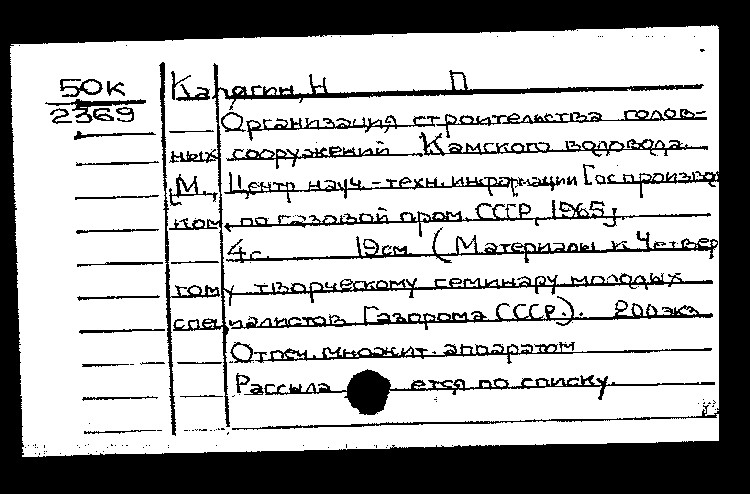 50к
2369
Карягин, Н П
Организация строительства голов-
ных сооружений Камского водовода.
[М., Центр науч.-техн. информации Гос произвол
ком. по газовой пром. СССР, 1965].
4с. 19см (Материалы к Четвер
тому творческому семинару молодых
специалистов Газпрома СССР). 200 экз
Отпеч. множит. аппаратом
Рассыла ется по списку.